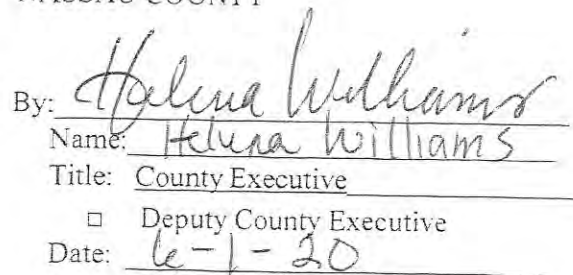 NASSAU COUNTY
By: Helena Williams
Name: Helena Williams
Title: County Executive
□ Deputy County Executive
Date: 6-1-20